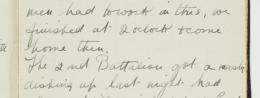 men had to work in this, we
finished at 2 oclock & come
home then.
The 2nd Battalion got a
dishing up last night had